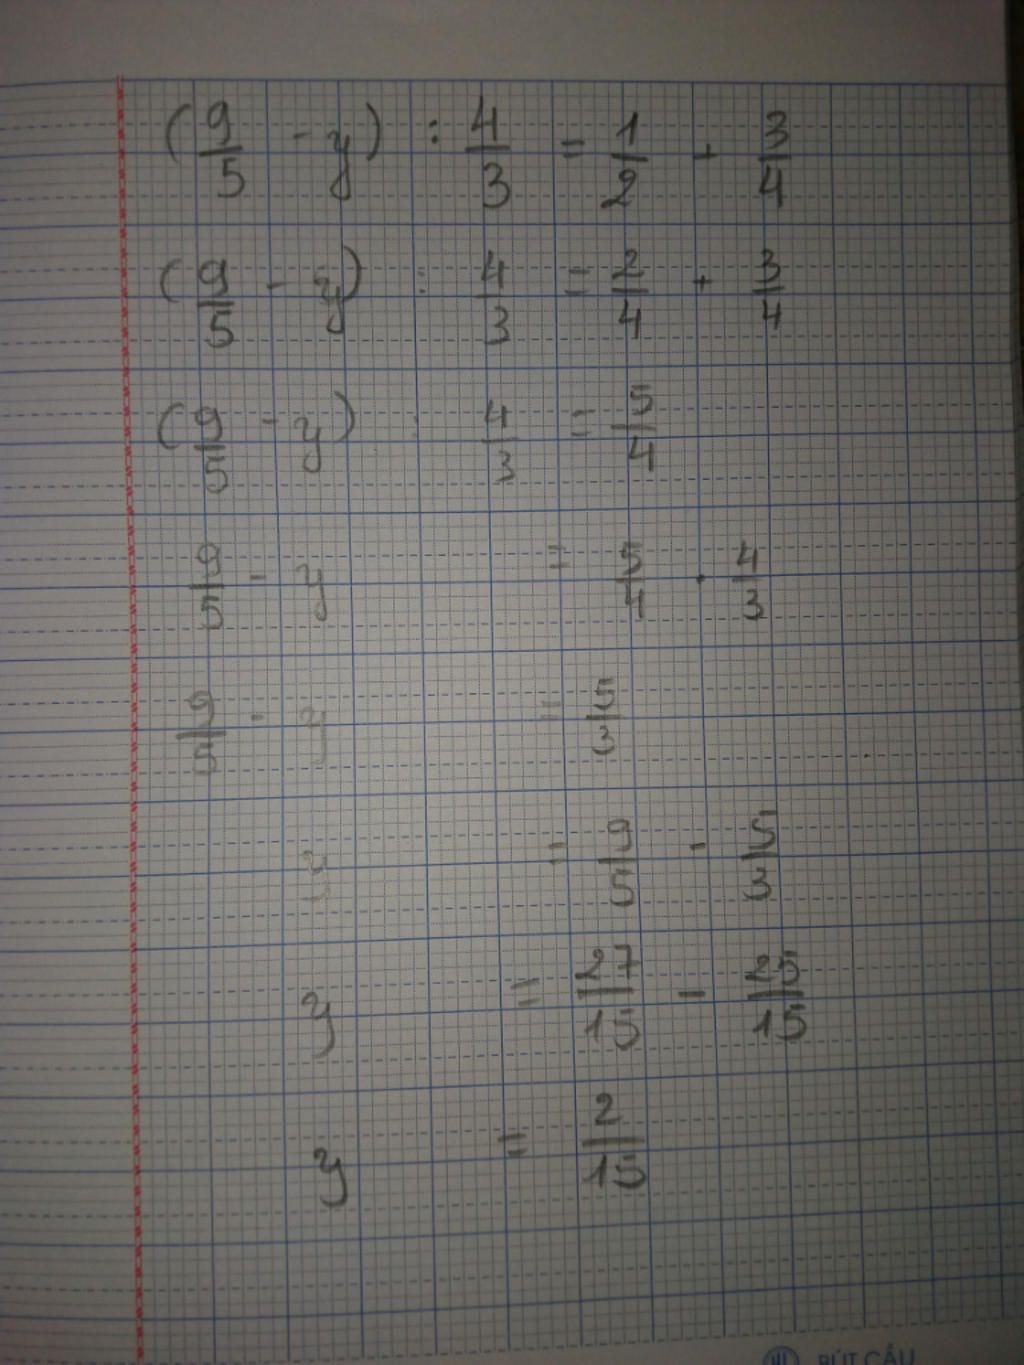 (9/5 - y) : 4/3 = 1/2 + 3/4
(9/5 - y) : 4/3 = 2/4 + 3/4
(9/5 - y) : 4/3 = 5/4
9/5 - y = 5/4 . 4/3
9/5 - y = 5/3
y = 9/5 - 5/3
y = 27/15 - 25/15
y = 2/15
BÚT CẦU